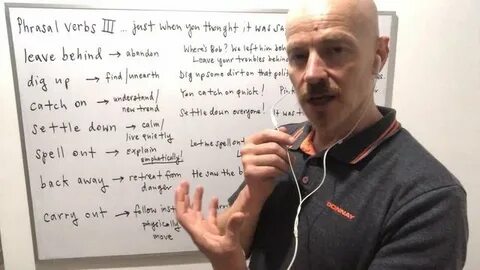 Phrasal Verbs III ... just when you thought it was sa
leave behind → abandon Where's Bob? We left him beh
Leave your troubles behind
dig up → find/unearth Dig up some dirt on that polit
catch on → understand/ You catch on quick!
new trend
settle down → calm/ Settle down everyone! It was t
live quietly
spell out → explain Let me spell out
emphatically!
back away → retreat from He saw the b
danger
carry out → follow inst
physically
move
DONNAY